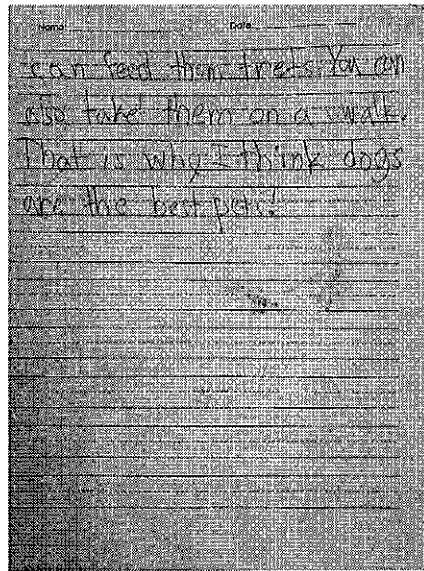 Name Date
can feed them trets. You can
also take them on a walk.
That is why I think dogs
are the best pets!